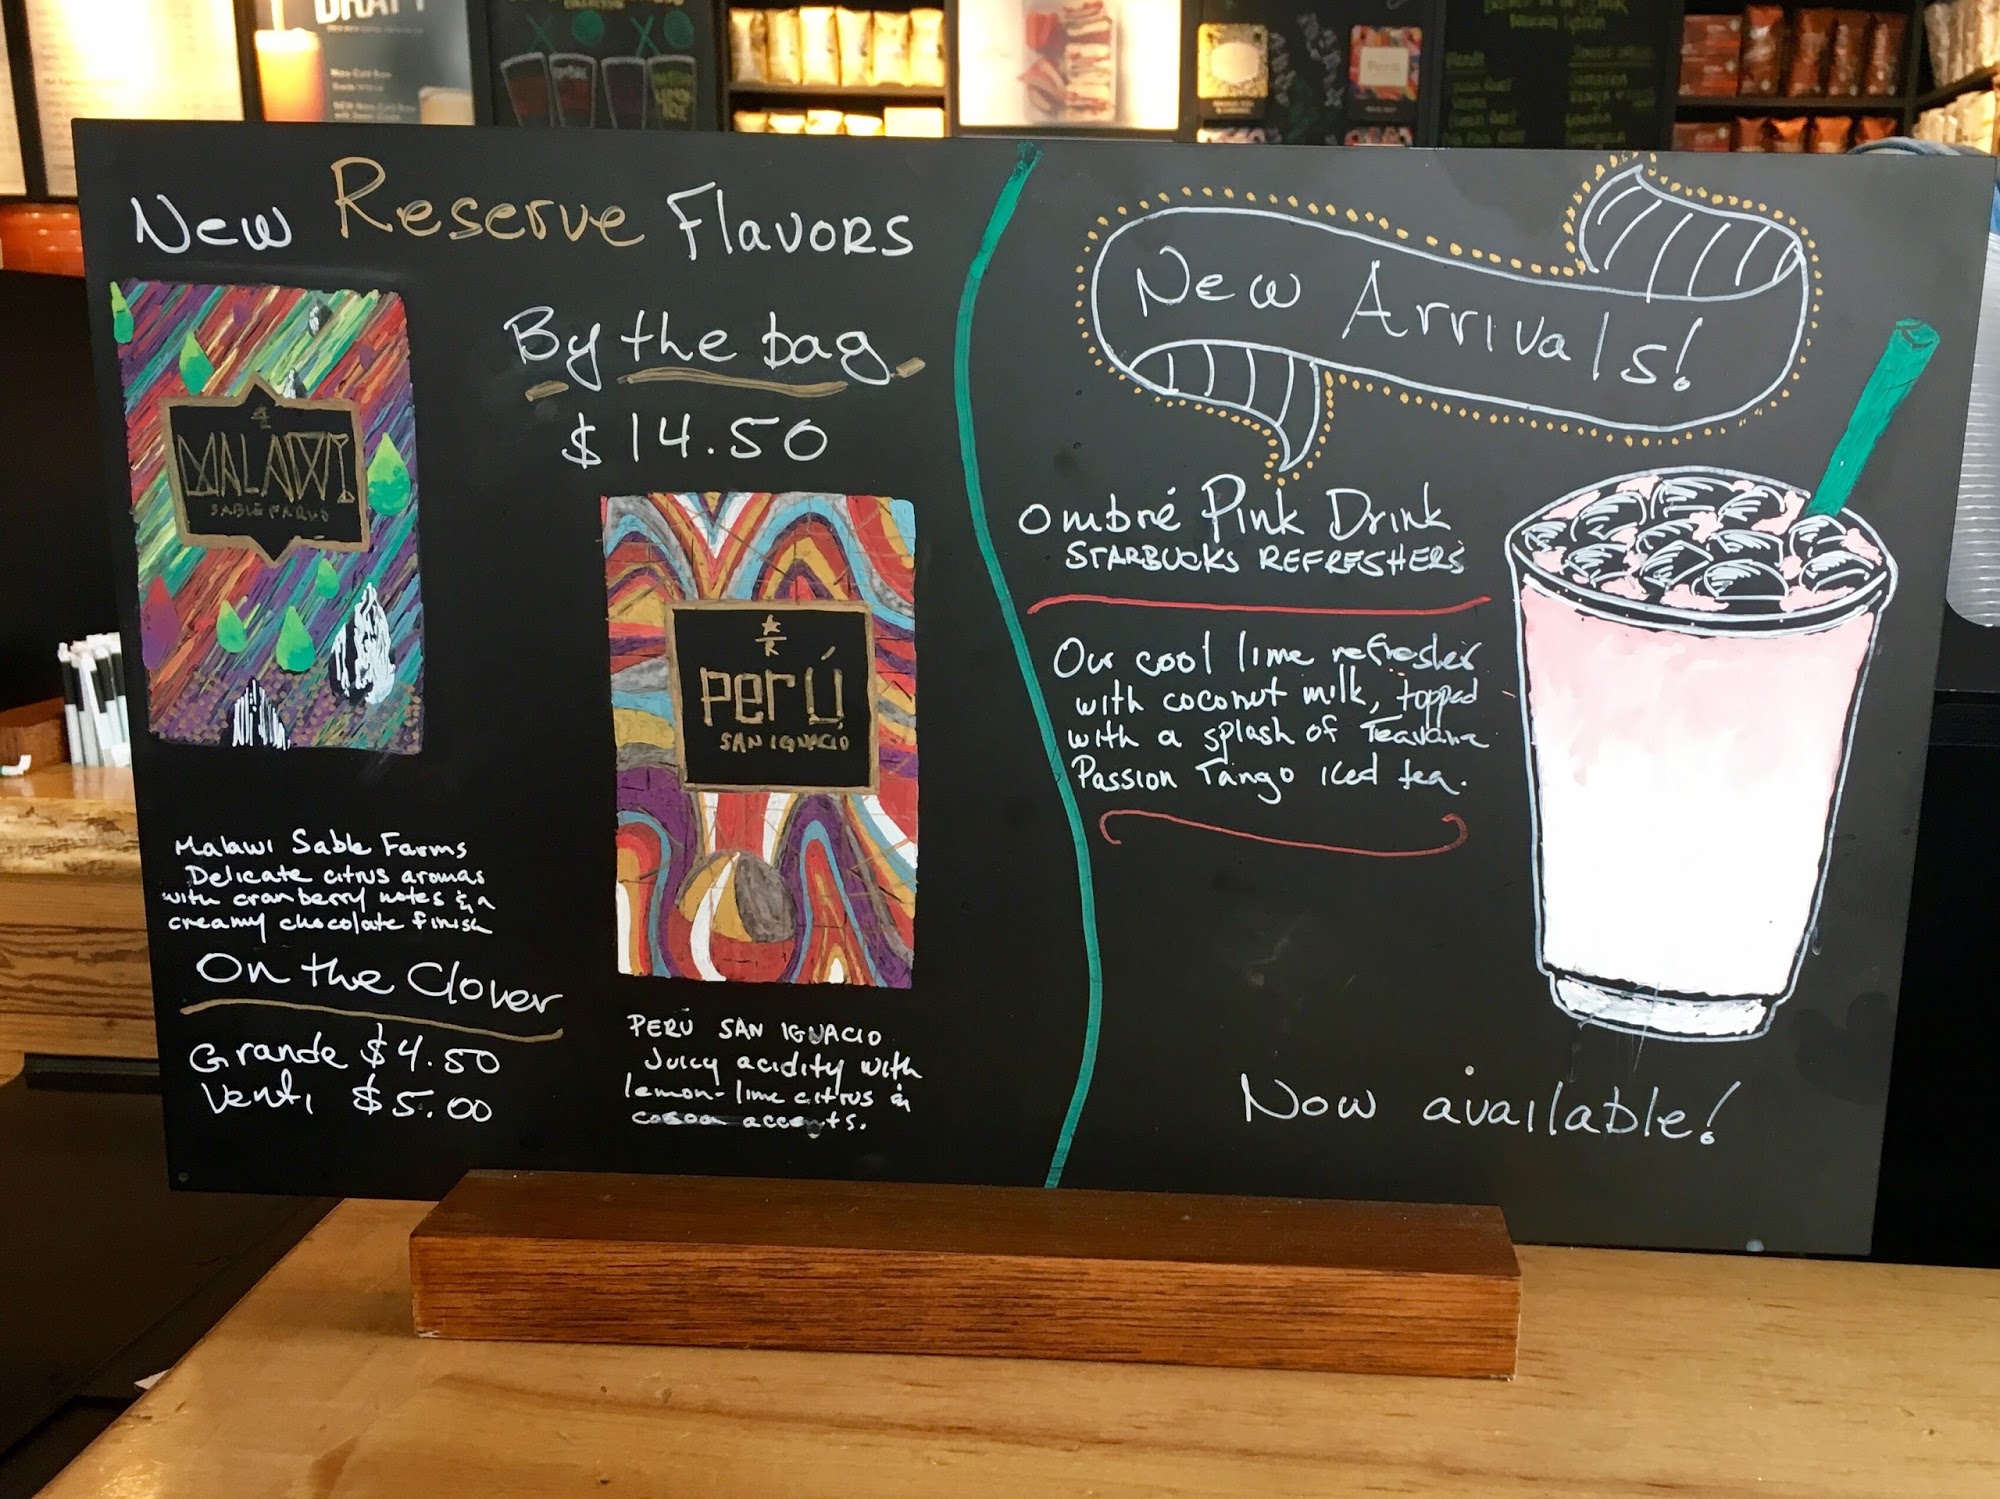 DRAFT
New Reserve Flavors
MALAWI
SABLE FARMS
By the bag
$14.50
PERÚ
SAN IGNACIO
Malawi Sable Farms
Delicate citrus aromas
with cranberry notes & a
creamy chocolate finish
On the Clover
Grande $4.50
Venti $5.00
PERÚ SAN IGNACIO
Juicy acidity with
lemon-lime citrus &
cocoa accents.
New Arrivals!
Ombré Pink Drink
STARBUCKS REFRESHERS
Our cool lime refresher
with coconut milk, topped
with a splash of Teavana
Passion Tango iced tea.
Now available!